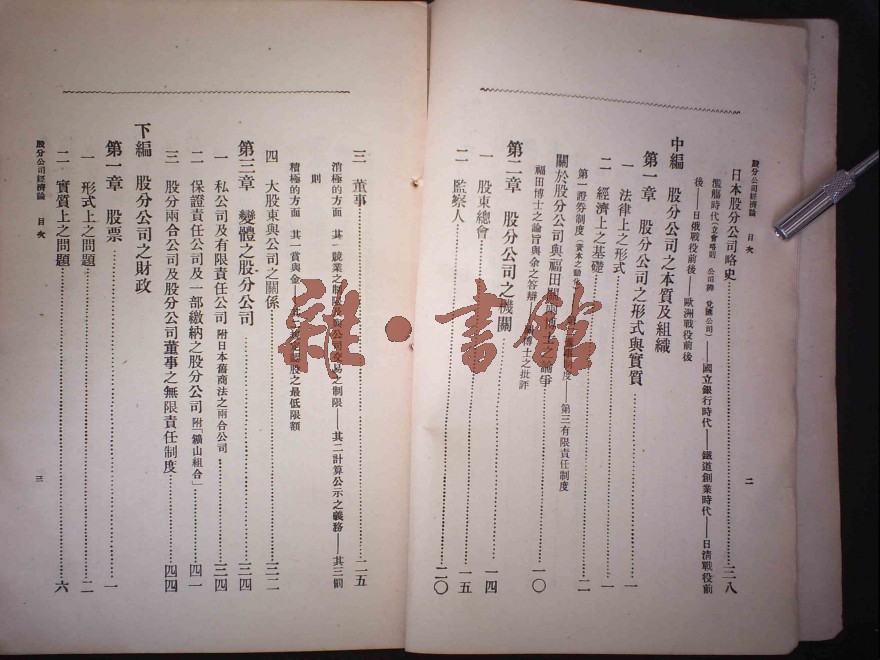 股分公司經濟論 目次 二
日本股分公司略史……三八
濫觴時代（立會略則 公司辨 兌匯公司）——國立銀行時代——鐵道創業時代——日清戰役前
後——日俄戰役前後——歐洲戰役前後
中編 股分公司之本質及組織
第一章 股分公司之形式與實質
一 法律上之形式……一
二 經濟上之基礎……一
第一證券制度（資本之動 度——第三有限責任制度……二
關於股分公司與福田 博士之論爭……一〇
福田博士之論旨與余之答辯 博士之批評
第二章 股分公司之機關
一 股東總會……一四
二 監察人……一五
……二〇
三 董事……二五
消極的方面 其一競業之制限及與公司交易之制限——其二計算公示之義務——其三罰
則
積極的方面 其一賞與金 股之最低限額
四 大股東與公司之關係……三二
第三章 變體之股分公司……三四
一 私公司及有限責任公司 附日本舊商法之兩合公司……三四
二 保證責任公司及一部繳納之股分公司 附「鑛山組合」……四一
三 股分兩合公司及股分公司董事之無限責任制度……四四
下編 股分公司之財政
第一章 股票……一
一 形式上之問題……二
二 實質上之問題……六
股分公司經濟論 目次 三
雜·書館